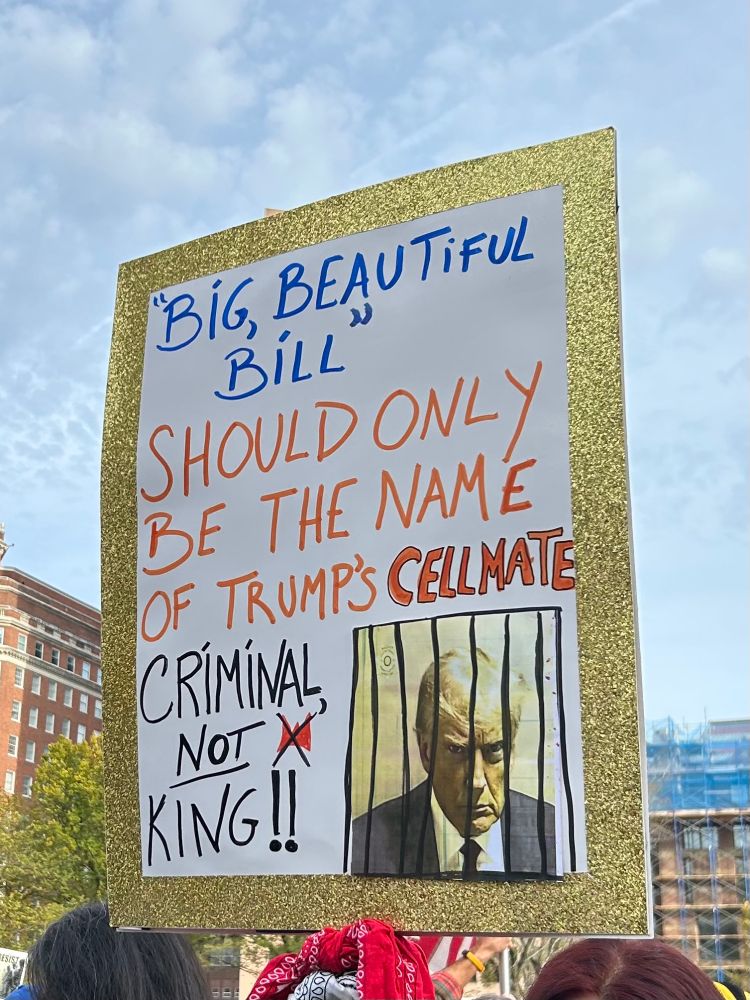 "BIG, BEAUTIFUL
BILL"
SHOULD ONLY
BE THE NAME
OF TRUMP'S CELLMATE
CRIMINAL,
NOT
KING!!
RESIST